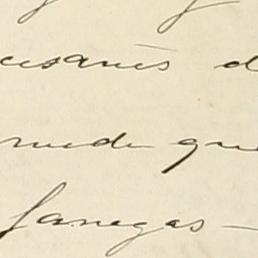 cesarios d
mide que
fanegas —